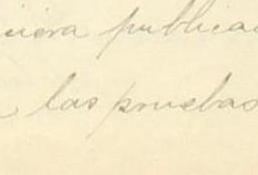 uiera publica
las pruebas